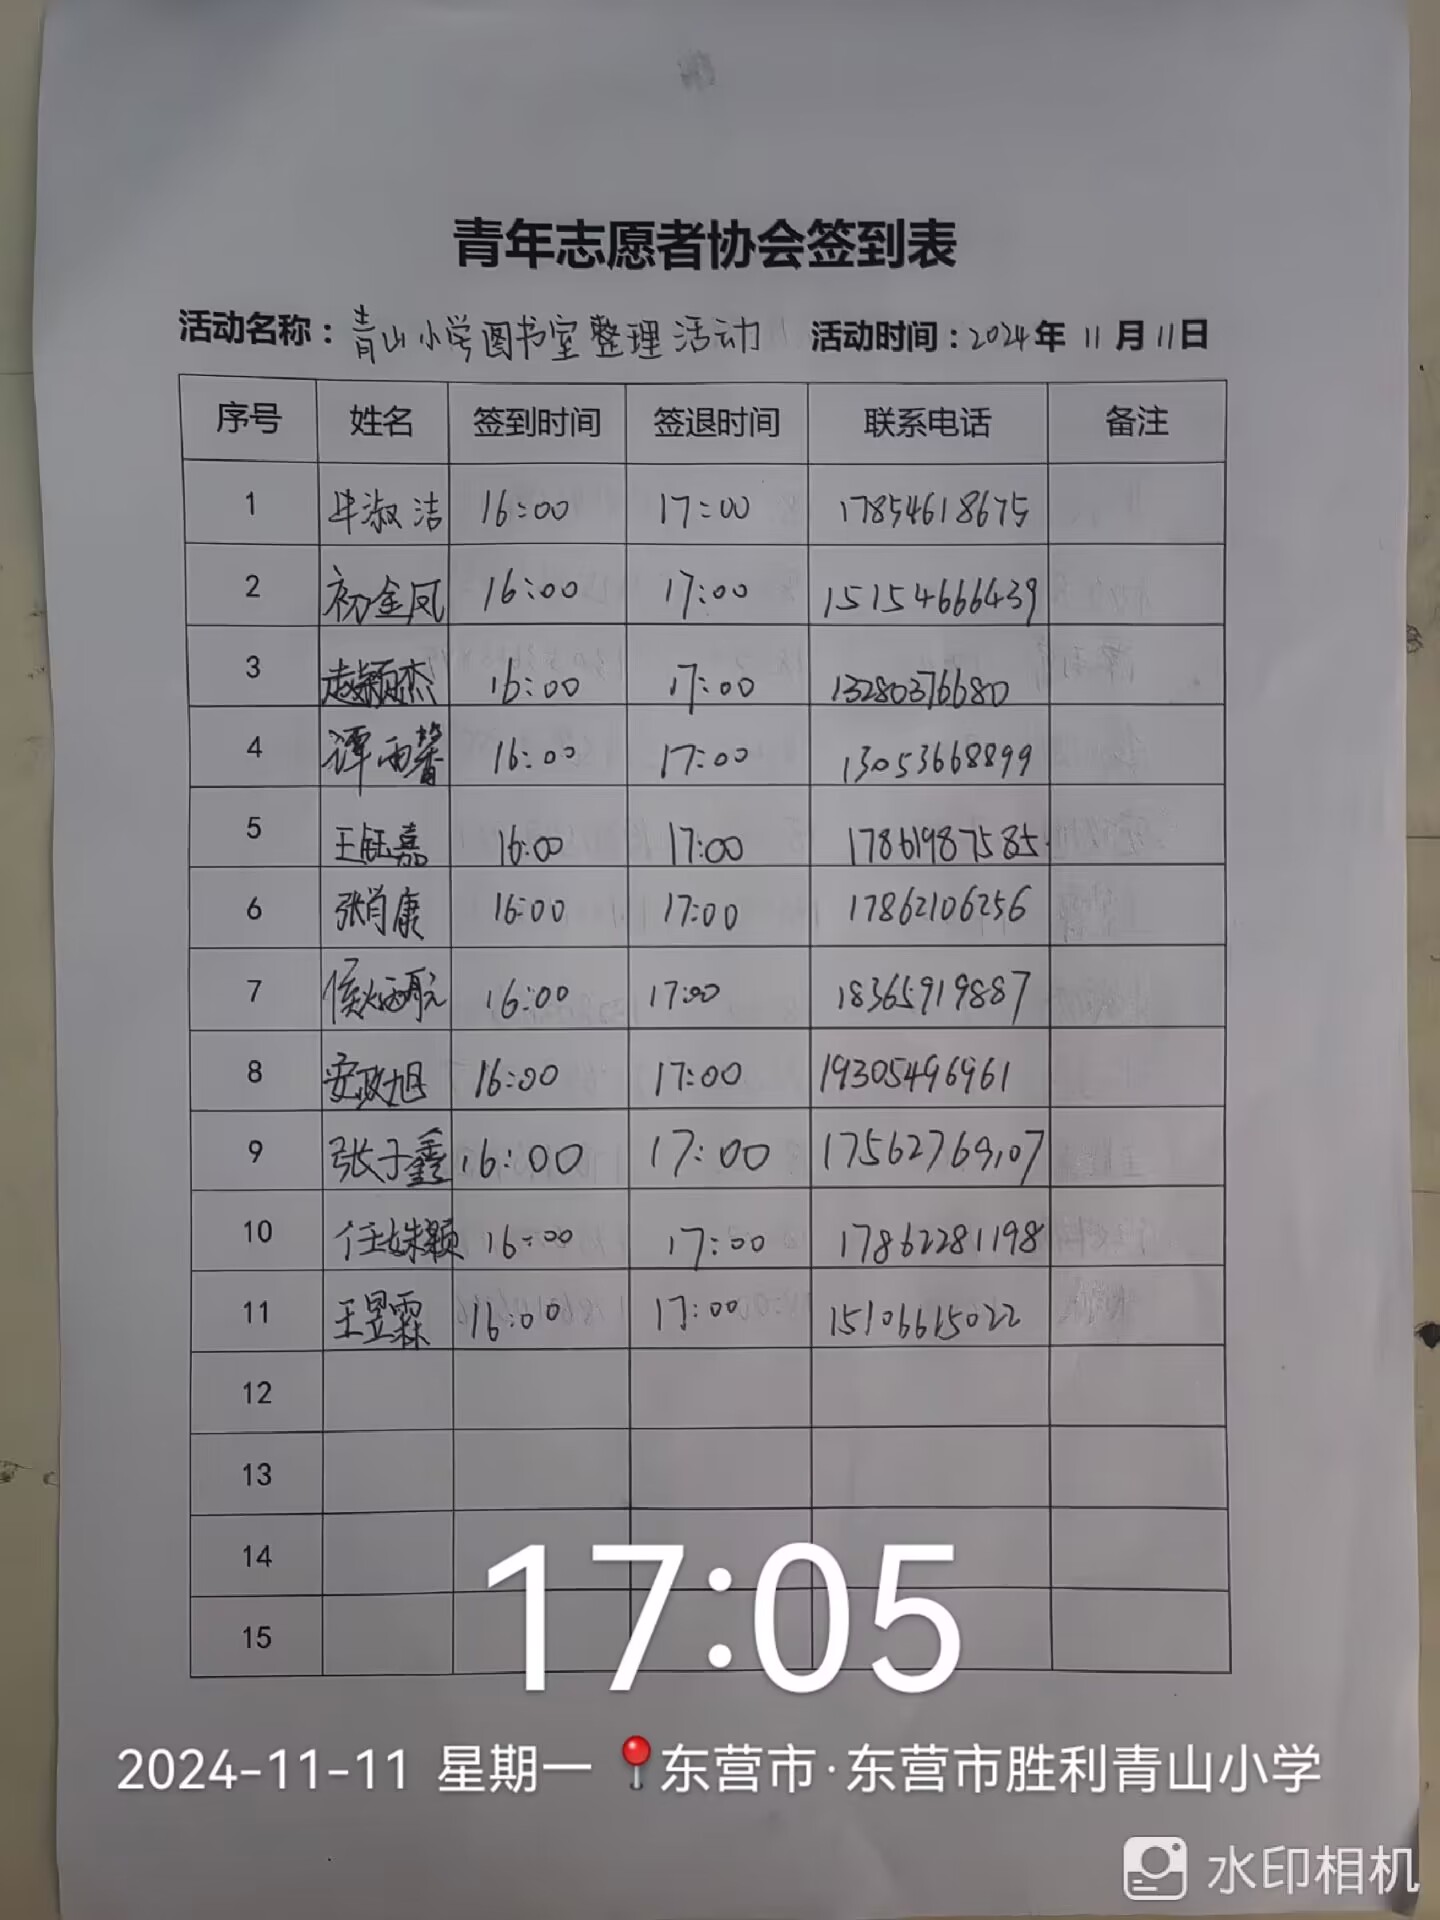 青年志愿者协会签到表
活动名称：青山小学图书室整理活动 活动时间：2024年 11月 11日
序号 姓名 签到时间 签退时间 联系电话 备注
1 牛淑洁 16:00 17:00 17854618675
2 初金凤 16:00 17:00 15154666439
3 赵颖杰 16:00 17:00 13280376680
4 谭雨馨 16:00 17:00 13053668899
5 王钰嘉 16:00 17:00 17861987585
6 张肖康 16:00 17:00 17862106256
7 16:00 17:00 18365919887
8 安政旭 16:00 17:00 19305496961
9 张子鑫 16:00 17:00 17562769107
10 任姝颖 16:00 17:00 17862281198
11 王昱霖 16:00 17:00 15106615022
12
13
14
15
17:05
2024-11-11 星期一 东营市·东营市胜利青山小学
水印相机